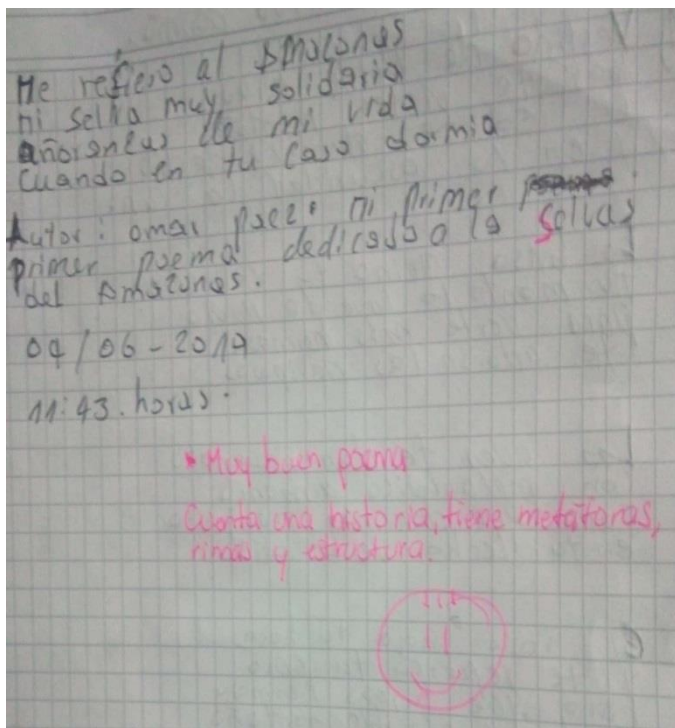 He refiero al Amazonas
mi selva muy solidaria
añoranzas de mi vida
Cuando en tu caso dormia
Autor: omar paez. mi primer
primer poema dedicado a la selvas
del Amazonas.
04/06-2019
11:43. horas.
• Muy buen poema
Cuenta una historia, tiene metáforas,
rimas y estructura.